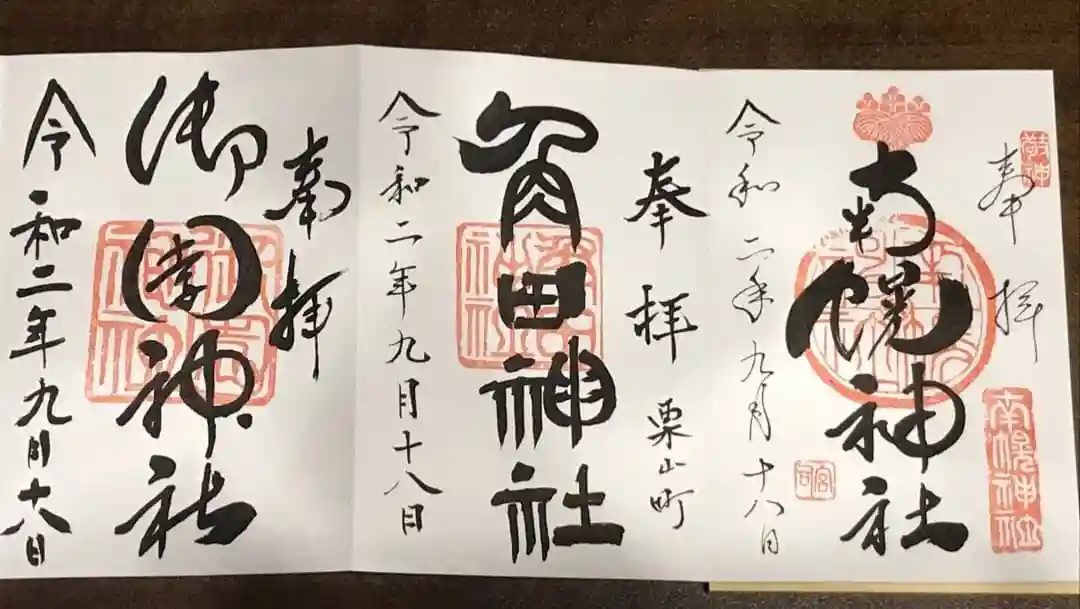 敬神
奉拝
南幌神社
南幌神社
宮司
令和二年九月十八日
奉拝 栗山町
角田神社
令和二年九月十八日
奉拝
御園神社
令和二年九月十八日